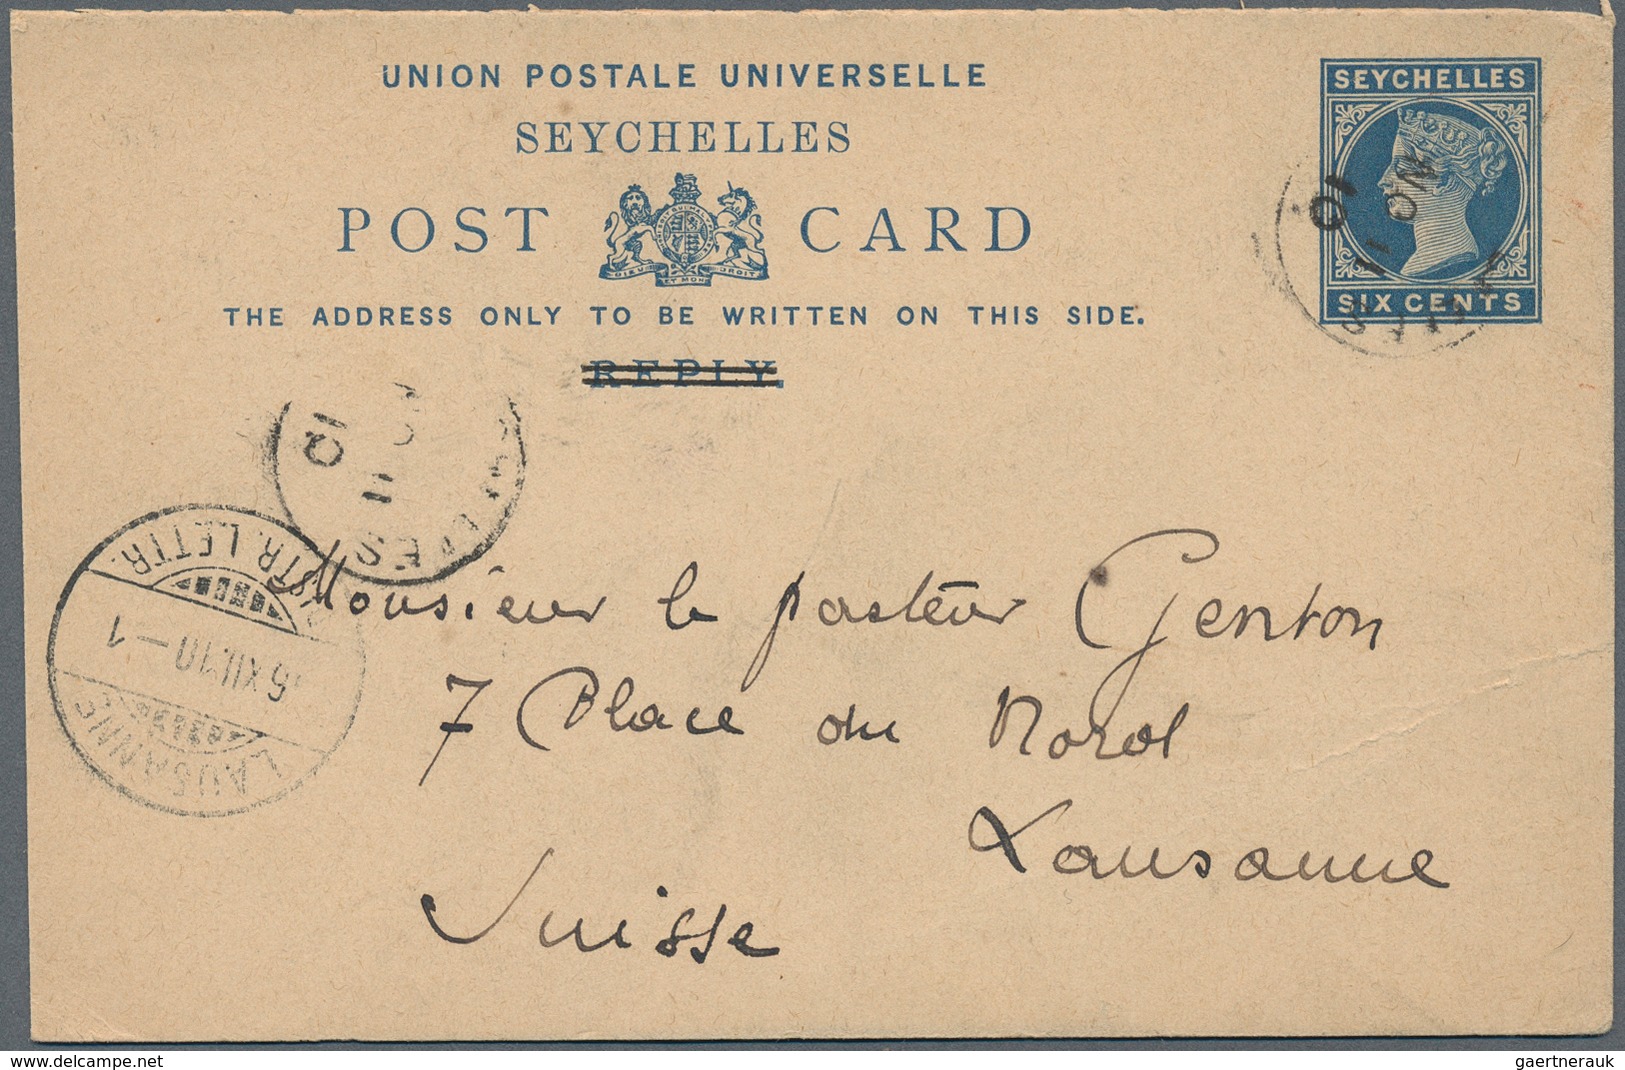 UNION POSTALE UNIVERSELLE
SEYCHELLES
POST CARD
DIEU ET MON DROIT
THE ADDRESS ONLY TO BE WRITTEN ON THIS SIDE.
REPLY.
SEYCHELLES
SIX CENTS
NO 11
10
11
10
LETTR.
XII.10–1
LAUSANNE
Monsieur le pasteur Genton
7 Place du Nord
Lausanne
Suisse
www.delcampe.net
gaertnerauk